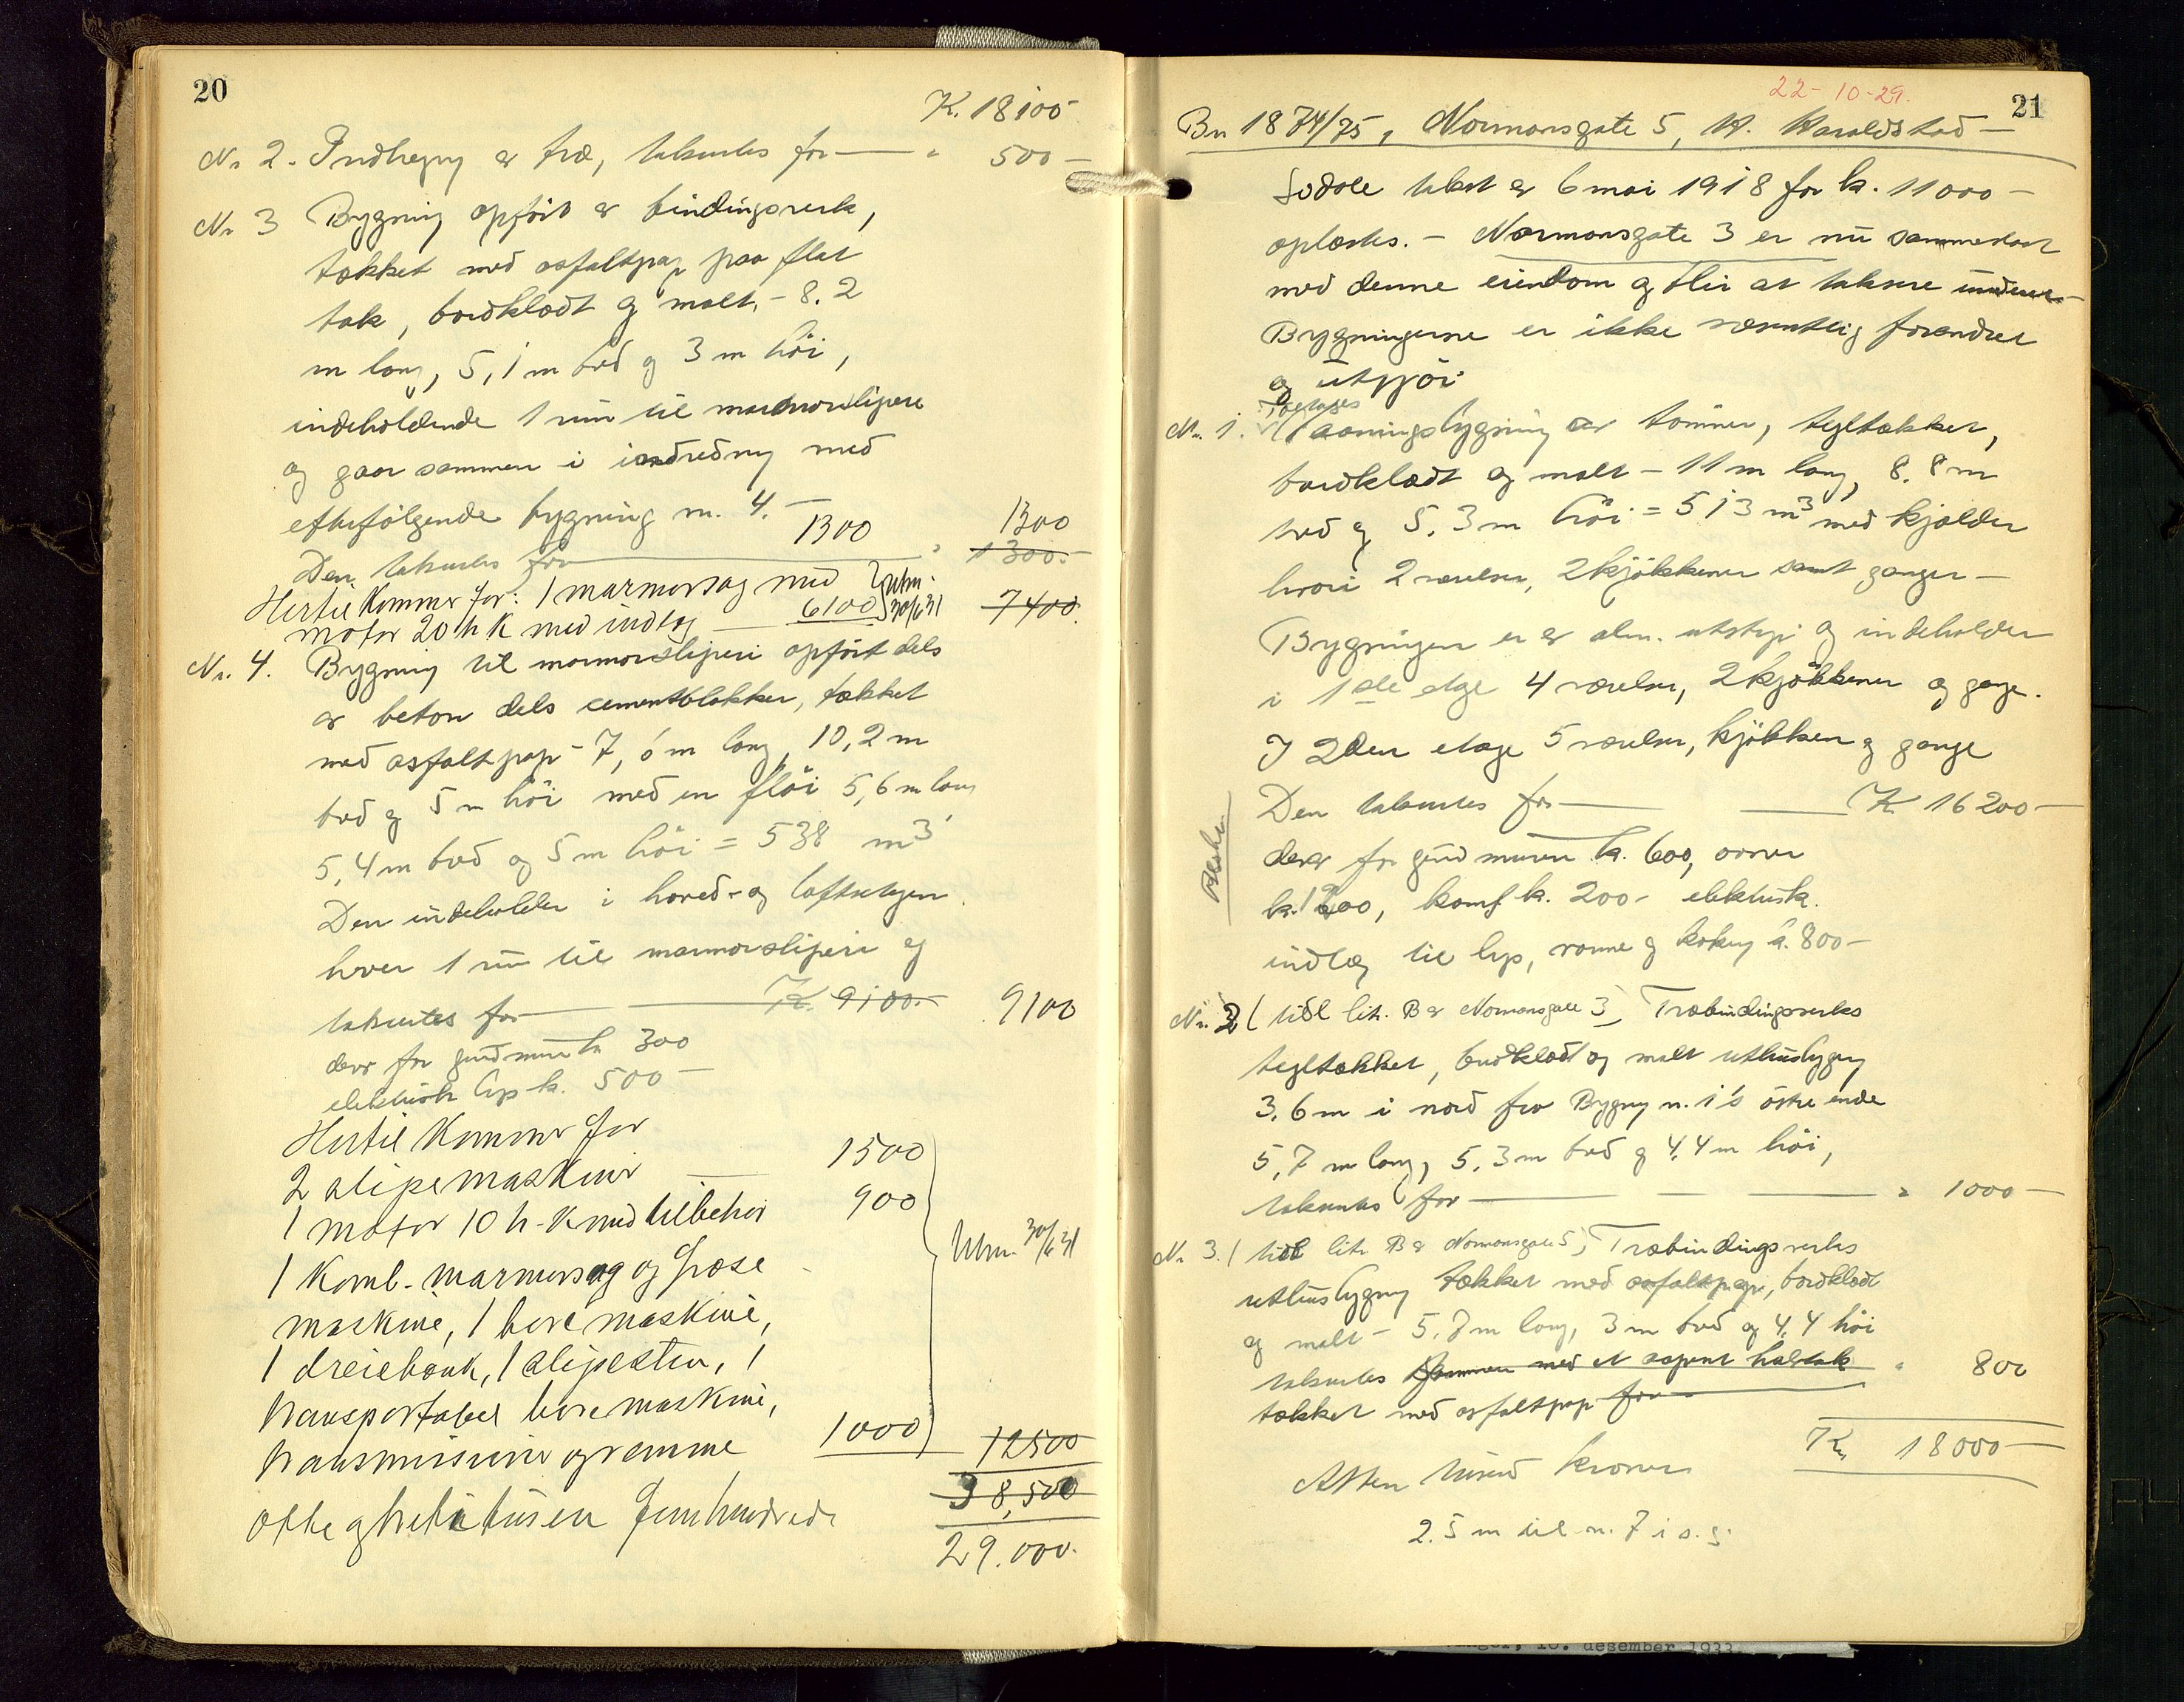 20
K. 18100-
Nr 2. Indhegn av træ, takseres for — " 500 —
Nr 3 Bygning opført av bindingsverk,
tækket med asfaltpap paa flat
tak, bordklædt og malt, - 8.2
m lang, 5,1 m bred og 3 m høi,
indeholdende 1 rum til marmorsliperi
og gaar sammen i indredning med
efterfølgende bygning nr. 4. —
1300 1300
Den takseres for — " 1300.-
Hertil kommer for: 1 marmorsag med
motor 20 h K med indlæg — 6100 Utm. 30/6 31 7400.
Nr. 4. Bygning til marmorsliperi opført dels
av beton dels cementblokker, tækket
med asfaltpap - 7,6 m lang, 10,2 m
bred og 5 m høi med en fløi 5,6 m lang,
5,4 m bred og 5 m høi = 538 m3
Den indeholder i hoved- og loftsetagen
hver 1 rum til marmorsliperi og
takseres for — K. 9100.- 9100
derav for grundmure kr 300
elektrisk lys k. 500 —
Hertil kommer for
2 slipemaskiner — 1500
1 motor 10 h-K med tilbehør 900
1 komb. marmorsag og fræse-
maskine, 1 boremaskine,
Utm. 30/6 31
1 dreiebænk, 1 slipesten, 1
transportabel boremaskine,
transmissioner og remme 1000 12500
38,500
otte og tretti tusen femhundrede
29.000.
22-10-29.
21
Bn 1874/75, Normansgate 5, H. Haraldstad —
Sidste takst av 6 mai 1918 for k. 11000 —
oplæstes. — Normansgate 3 er nu sammenføiet
med denne eiendom og blir at taksere under
Bygningerne er ikke væsentlig forandret
og utgjør
2 etages
Nr. 1. Vaaningsbygning av tømmer, tegltækket,
bordklædt og malt — 11 m lang, 8.8 m
bred og 5.3 m høi = 513 m3 med kjælder
hvori 2 værelser, 2 kjøkkener samt ganger —
Bygningen er av alm. utstyr og indeholder
i 1ste etage 4 værelser, 2 kjøkkener og gange.
I 2den etage 5 værelser, kjøkken og gange
Den takseres for — K 16200 —
derav for grundmuren k. 600, ovner
k. 1200, komf k. 200- elektrisk
indlæg til lys, varme og kokning k. 800 —
Nr. 2 (tidl lit. B av Normansgate 3) Træbindingsverks
tegltækket, bordklædt og malt uthusbygning
3.6 m i nord fra Bygning nr. 1's østre ende
5,7 m lang, 5.3 m bred og 4,4 m høi,
takseres for — " 1000 —
Nr 3. (tidl lit B av Normansgate 5) Træbindingsverks
uthusbygning tækket med asfaltpap, bordklædt
og malt - 5.7 m lang, 3 m bred og 4.4 høi
takseres sammen med et aapent halvtak " 800
tækket med asfaltpap for —
Kr 18000 —
Atten tusind kroner
2.5 m til nr. 7 i s.g.
10. desember 1933.